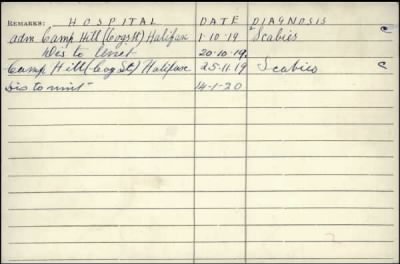 REMARKS: HOSPITAL DATE DIAGNOSIS
adm Camp Hill (Cogs St) Halifax 1-10-19 Scabies C
Dis to Unit 20-10-19.
Camp Hill (Cog St) Halifax 25-11-19 Scabies C
Dis to unit 14-1-20